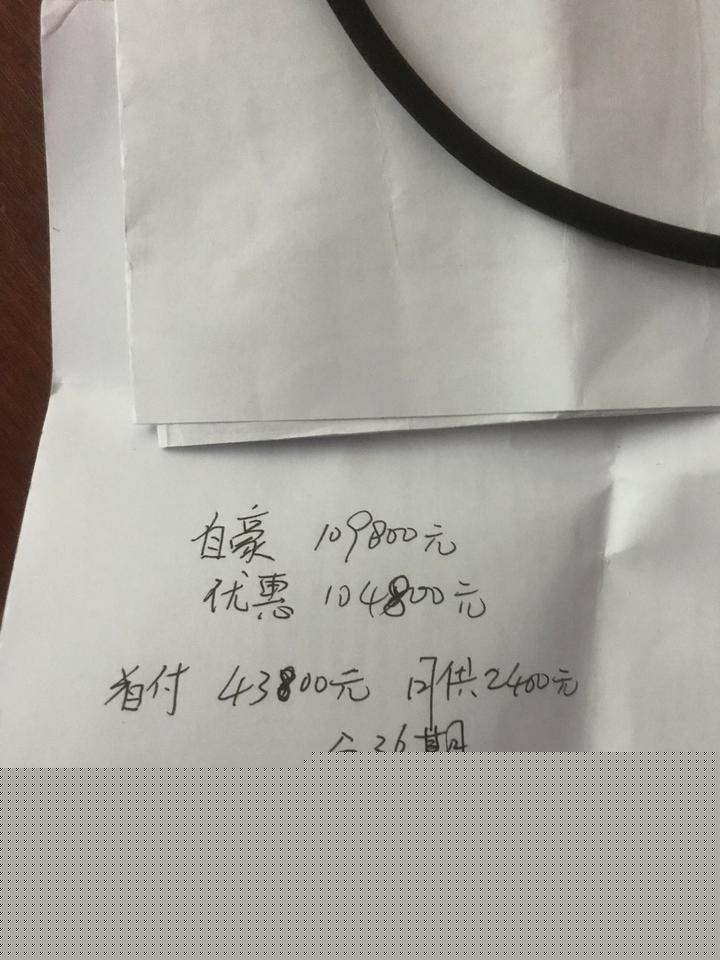 自豪 109800元
优惠 104800元
首付 43800元 月供2400元
分36期